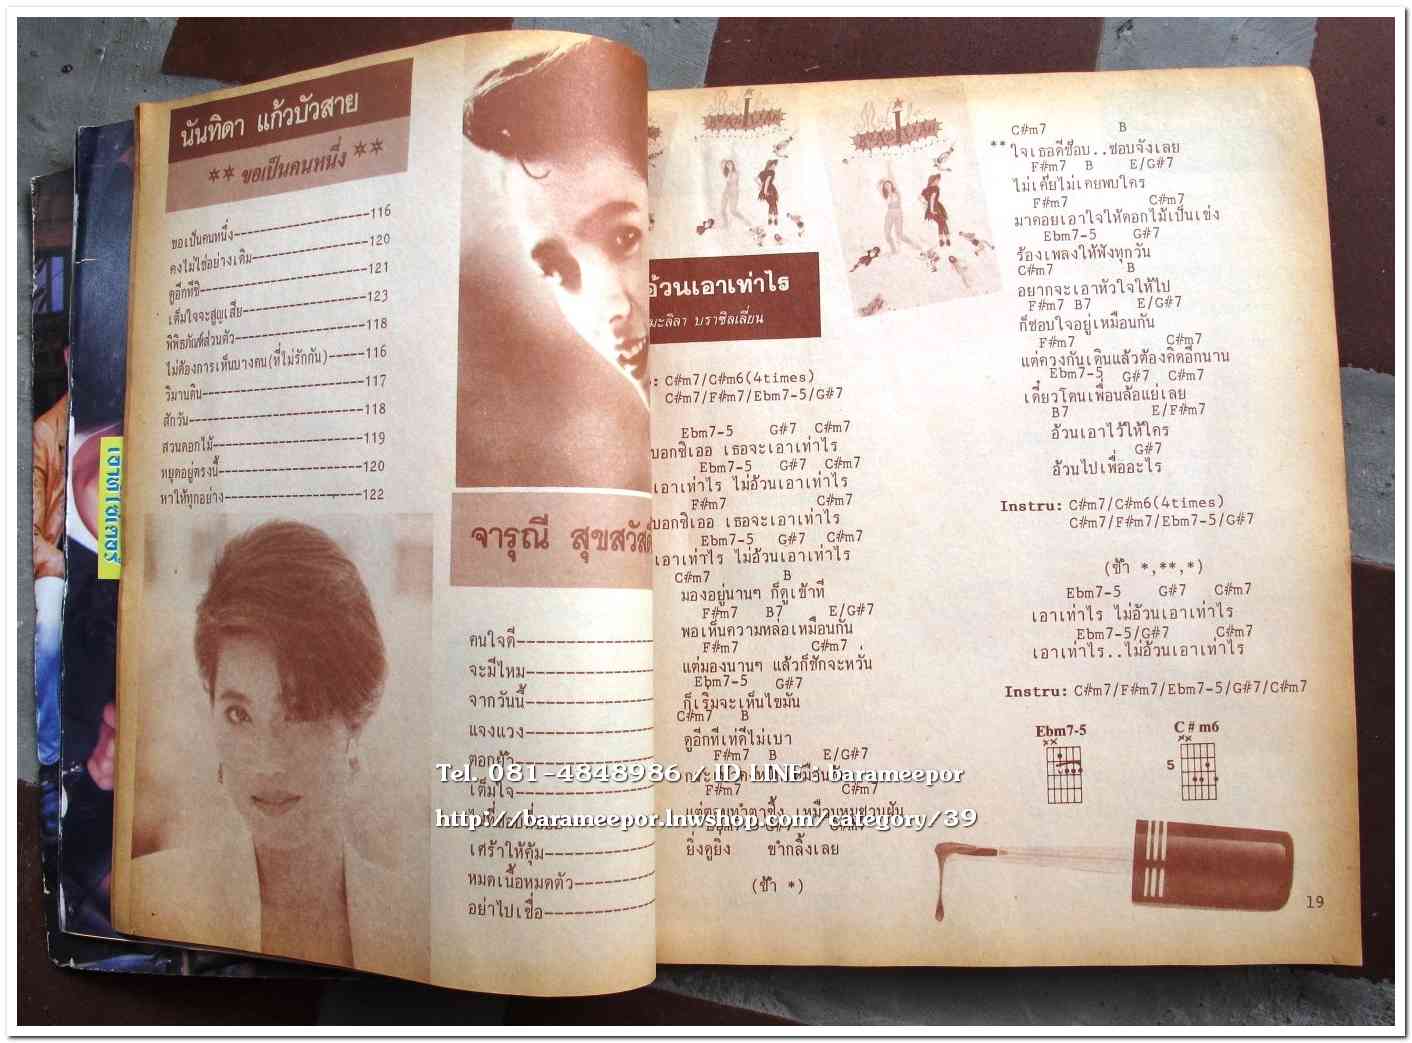 นันทิดา แก้วบัวสาย
** ขอเป็นคนหนึ่ง **
ขอเป็นคนหนึ่ง--------------------116
คงไม่ใช่อย่างเดิม-----------------120
ดูอีกทีซิ-------------------------121
เต็มใจจะสูญเสีย------------------123
พิพิธภัณฑ์ส่วนตัว------------------118
ไม่ต้องการเห็นบางคน(ที่ไม่รักกัน)-----116
วิมานดิน-------------------------117
สักวัน---------------------------118
สวนดอกไม้-----------------------119
หยุดอยู่ตรงนี้----------------------120
หาให้ทุกอย่าง---------------------122
จารุณี สุขสวัสดิ์
คนใจดี-----------------
จะมีไหม----------------
จากวันนี้----------------
แจงแวง----------------
ตอกย้ำ-----------------
เต็มใจ-----------------
เศร้าให้คุ้ม--------------
หมดเนื้อหมดตัว-----------
อย่าไปเชื่อ--------------
อ้วนเอาเท่าไร
มะลิลา บราซิลเลี่ยน
: C#m7/C#m6(4times)
C#m7/F#m7/Ebm7-5/G#7
Ebm7-5 G#7 C#m7
บอกซิเออ เธอจะเอาเท่าไร
Ebm7-5 G#7 C#m7
เอาเท่าไร ไม่อ้วนเอาเท่าไร
F#m7 C#m7
บอกซิเออ เธอจะเอาเท่าไร
Ebm7-5 G#7 C#m7
เอาเท่าไร ไม่อ้วนเอาเท่าไร
C#m7 B
มองอยู่นานๆ ก็ดูเข้าที
F#m7 B7 E/G#7
พอเห็นความหล่อเหมือนกัน
F#m7 C#m7
แต่มองนานๆ แล้วก็ชักจะหวั่น
Ebm7-5 G#7
ก็เริ่มจะเห็นไขมัน
C#m7 B
ดูอีกทีเท่ดีไม่เบา
F#m7 B E/G#7
F#m7 C#m7
แต่ตอนทำตาซึ้ง เหมือนหมูชวนฝัน
ยิ่งดูยิ่ง ขำกลิ้งเลย
(ซ้ำ *)
C#m7 B
** ใจเธอดีชอบ..ชอบจังเลย
F#m7 B E/G#7
ไม่เคยไม่เคยพบใคร
F#m7 C#m7
มาคอยเอาใจให้ดอกไม้เป็นเข่ง
Ebm7-5 G#7
ร้องเพลงให้ฟังทุกวัน
C#m7 B
อยากจะเอาหัวใจให้ไป
F#m7 B7 E/G#7
ก็ชอบใจอยู่เหมือนกัน
F#m7 C#m7
แต่ควงกันเดินแล้วต้องคิดอีกนาน
Ebm7-5 G#7 C#m7
เดี๋ยวโดนเพื่อนล้อแย่เลย
B7 E/F#m7
อ้วนเอาไว้ให้ใคร
G#7
อ้วนไปเพื่ออะไร
Instru: C#m7/C#m6(4times)
C#m7/F#m7/Ebm7-5/G#7
(ซ้ำ *,**,*)
Ebm7-5 G#7 C#m7
เอาเท่าไร ไม่อ้วนเอาเท่าไร
Ebm7-5/G#7 C#m7
เอาเท่าไร..ไม่อ้วนเอาเท่าไร
Instru: C#m7/F#m7/Ebm7-5/G#7/C#m7
Ebm7-5 C#m6
xx xx
5
19
Tel. 081-4848986 / ID LINE : barameepor
http://barameepor.lnwshop.com/category/39